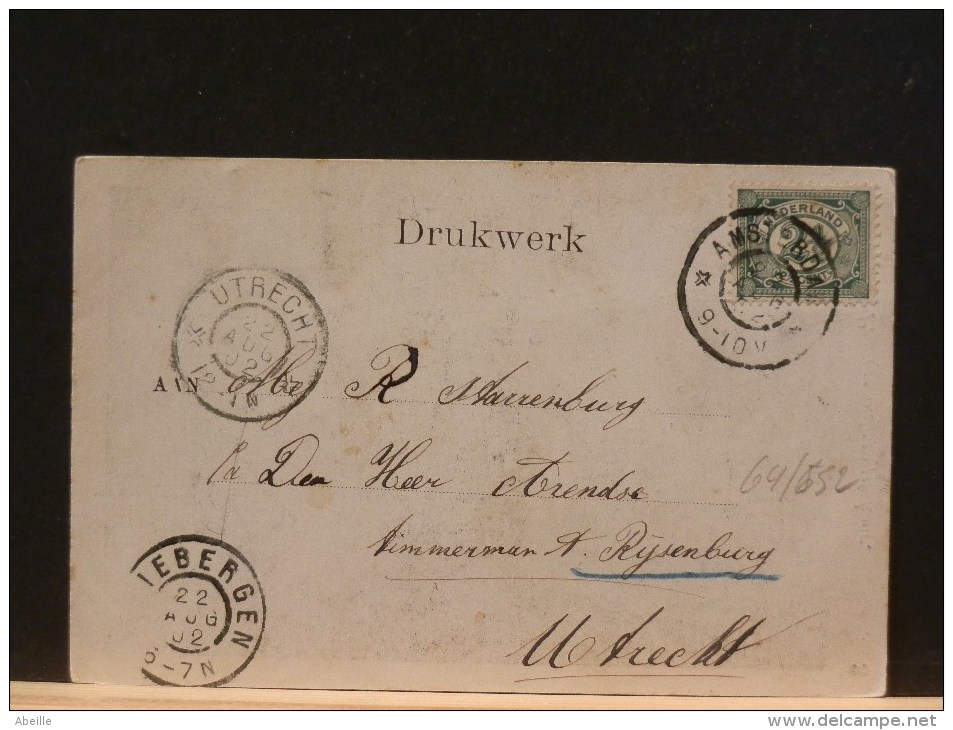 Drukwerk
NEDERLAND
AMST BDM
9-10V
UTRECHT
22
AUG
02
12- 1N
AAN Mej R Starrenburg
p/a Den Heer Arendse
timmerman t. Rijsenburg
Utrecht
64/652
IEBERGEN
22
AUG
02
-7N
Abeille
www.delcampe.net